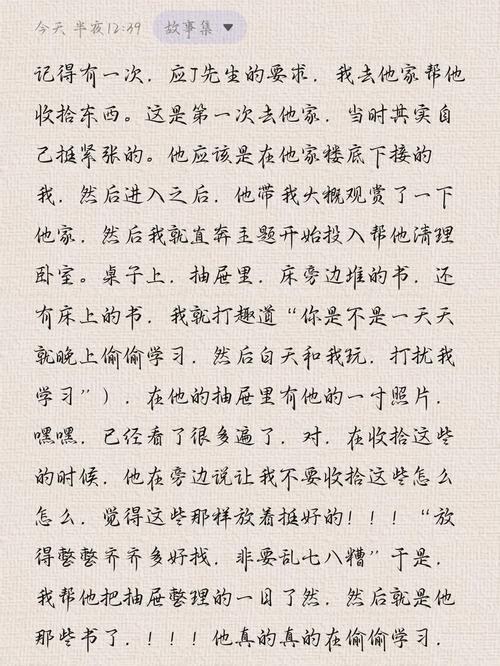 今天 半夜12:39 故事集
记得有一次，应J先生的要求，我去他家帮他
收拾东西。这是第一次去他家，当时其实自
己挺紧张的。他应该是在他家楼底下接的
我，然后进入之后，他带我大概观赏了一下
他家，然后我就直奔主题开始投入帮他清理
卧室。桌子上，抽屉里，床旁边堆的书，还
有床上的书，我就打趣道“你是不是一天天
就晚上偷偷学习，然后白天和我玩，打扰我
学习”），在他的抽屉里有他的一寸照片，
嘿嘿，已经看了很多遍了，对，在收拾这些
的时候，他在旁边说让我不要收拾这些怎么
怎么，觉得这些那样放着挺好的！！！“放
得整整齐齐多好找，非要乱七八糟”于是，
我帮他把抽屉整理的一目了然，然后就是他
那些书了，！！！他真的真的在偷偷学习，